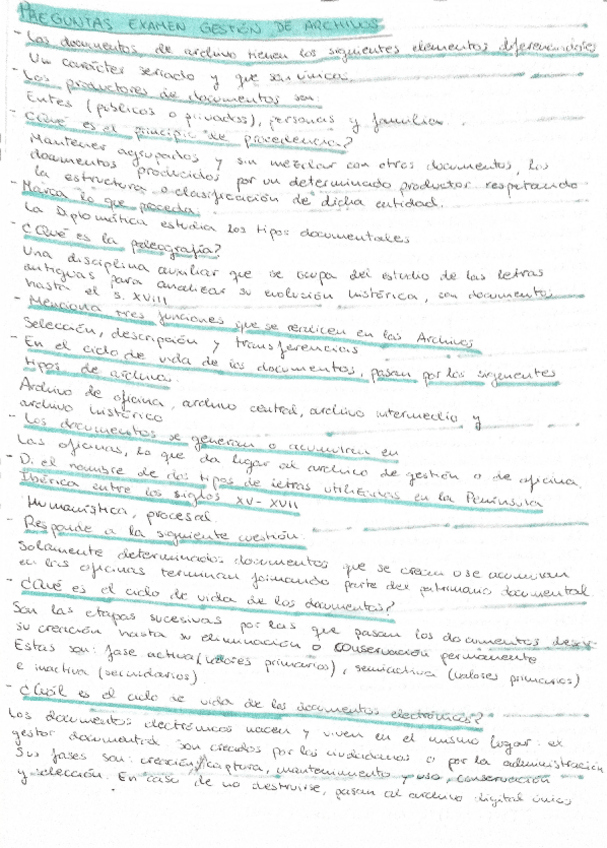 PREGUNTAS EXAMEN GESTIÓN DE ARCHIVOS
- Los documentos de archivo tienen los siguientes elementos diferenciadores
Un carácter seriado y que son únicos.
- Los productores de documentos son:
Entes (públicos o privados), personas y familias.
- ¿Qué es el principio de procedencia?
Mantener agrupados y sin mezclar con otros documentos, los
documentos producidos por un determinado productor respetando
la estructura o clasificación de dicha entidad.
- Marca lo que proceda
La Diplomática estudia los tipos documentales
- ¿Qué es la paleografía?
Una disciplina auxiliar que se ocupa del estudio de las letras
antiguas para analizar su evolución histórica, con documentos
hasta el S. XVIII
- Menciona tres funciones que se realicen en los Archivos
Selección, descripción y transferencias
- En el ciclo de vida de los documentos, pasan por los siguientes
tipos de archivos.
Archivo de oficina, archivo central, archivo intermedio y
archivo histórico
- Los documentos se generan o acumulan en
Las oficinas, lo que da lugar al archivo de gestión o de oficina.
- Di el nombre de dos tipos de letras utilizadas en la Península
Ibérica entre los siglos XV-XVII
Humanística, procesal.
- Responde a la siguiente cuestión.
Solamente determinados documentos que se crean o se acumulan
en las oficinas terminan formando parte del patrimonio documental.
- ¿Qué es el ciclo de vida de los documentos?
Son las etapas sucesivas por las que pasan los documentos desde
su creación hasta su eliminación o conservación permanente
Estas son: fase activa (valores primarios), semiactiva (valores primarios)
e inactiva (secundarios).
- ¿Cuál es el ciclo de vida de los documentos electrónicos?
Los documentos electrónicos nacen y viven en el mismo lugar: el
gestor documental. Son creados por los ciudadanos o por la administración
Sus fases son: creación/captura, mantenimiento y uso, conservación
y selección. En caso de no destruirse, pasan al archivo digital único